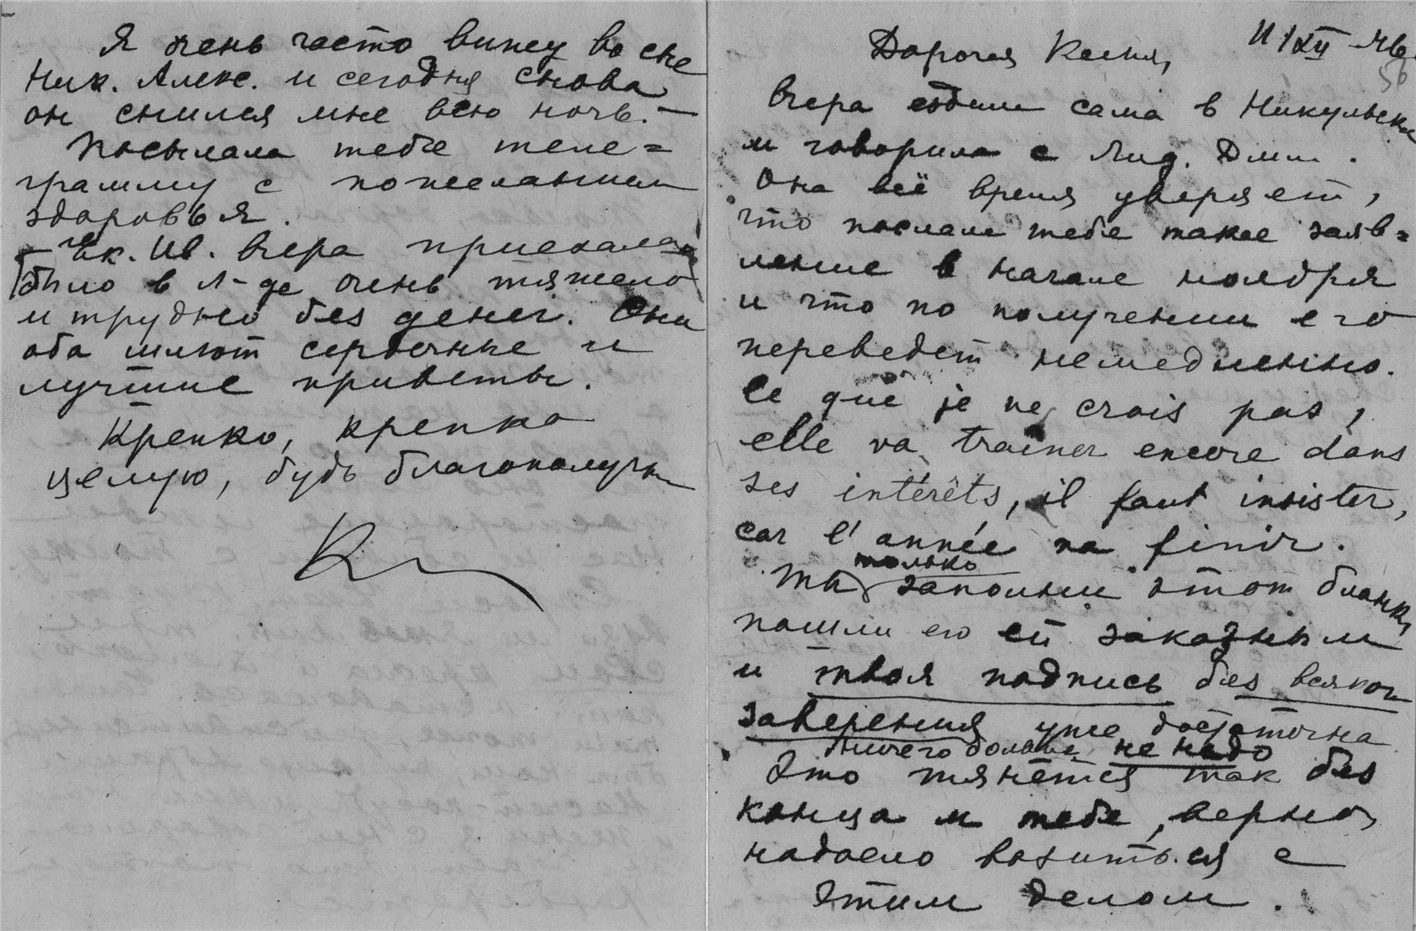 Я очень часто вижу во сне
Ник. Алекс. и сегодня снова
он снился мне всю ночь. —
Посылала тебе теле=
грамму с пожеланием
здоровья.
— Ек. Ив. вчера приехала
было в Л-де очень тяжело
и трудно без денег. Они
оба шлют сердечные и
лучшие приветы.
Крепко, крепко
целую, будь благополучна
К
11/XII -46
56
Дорогая Ксения,
Вчера ездила сама в Никульски
и говорила с Лид. Дми.
Она всё время уверяет,
что послала тебе такое заяв=
ление в начале ноября
и что по получении его
переведет немедленно.
Ce que je ne crois pas,
elle va trainer encore dans
ses intérêts, il faut insister,
car l'année va finir.
только
Ты заполни этот бланк,
пошли его ей заказным
и твоя подпись без всякого
заверения уже достаточна
Ничего больше не надо
Это тянется так без
конца и тебе, верно,
надоело возиться с
этим делом.